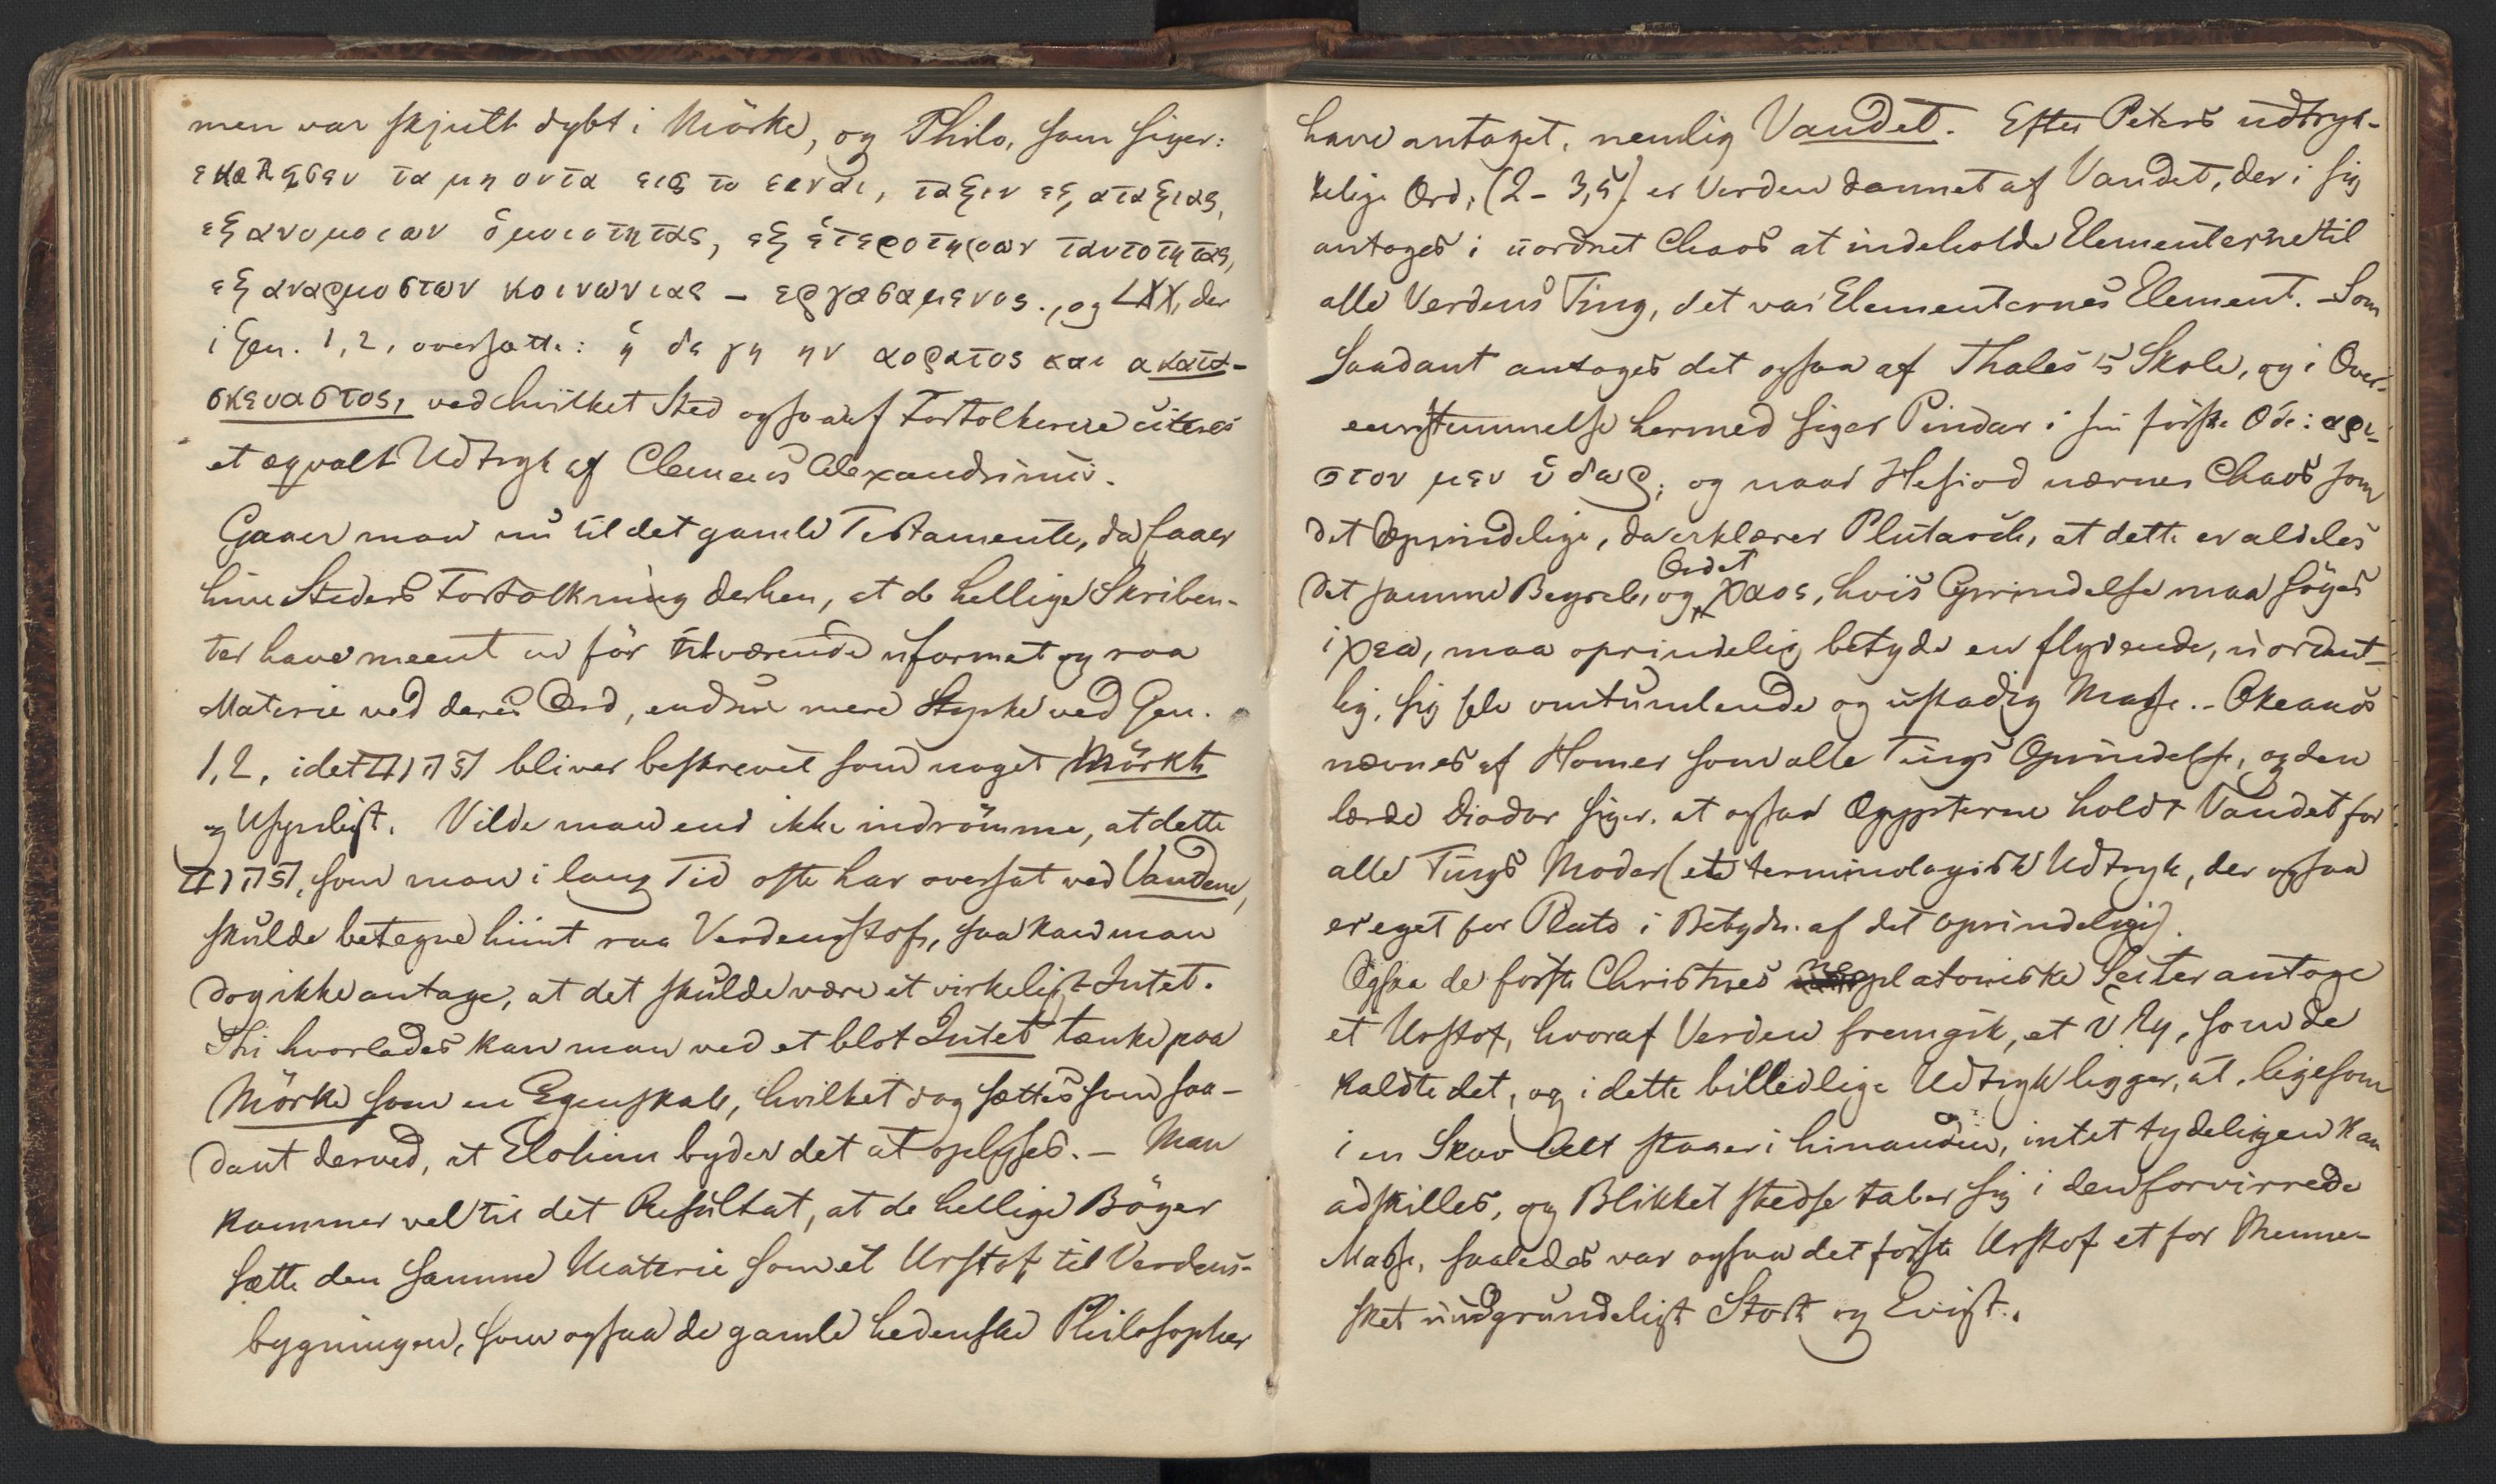 men var skjult dybt i Mörke, og Philo, som siger:
εκαλεσεν τα μη οντα εις το ειναι, ταξιν εξ αταξιας,
εξ ανομοιων ὁμοιοτητας, εξ ἑτεροτητων ταυτοτητας,
εξ αναρμοστων κοινωνιας – εργασαμενος., og LXX, der
i Gen. 1,2, oversætte: ἡ δε γη ην αορατος και ακατα-
σκευαστος, ved hvilket Sted ogsaa af Fortolkerne citeres
et æqvalt Udtryk af Clemens Alexandrinus.
Gaaer man nu til det gamle Testamente, da faaer
hine Steders Fortolkning derhen, at de hellige Skriben-
ter have meent en för tilværende uformet og raa
Materie ved deres Ord, endnu mere Styrke ved Gen.
1,2, idet תהום bliver beskrevet som noget Mörkt
og Usynligt. Vilde man end ikke indrömme, at dette
תהום, som man i lang Tid ofte har oversat ved Vandene,
skulde betegne hiint raa Verdensstof, saa kan man
dog ikke antage, at det skulde være et virkeligt Intet.
Thi hvorledes kan man ved et blot Intet tænke paa
Mörke som en Egenskab, hvilket dog sættes som saa-
dant derved, at Elohim byder det at oplyses. – Man
kommer vel til det Resultat, at de hellige Böger
sætte den samme Materie som et Urstof til Verdens-
bygningen, som ogsaa de gamle hedenske Philosopher
have antaget, nemlig Vandet. Efter Peters udtryk-
kelige Ord, (2-3,5) er Verden dannet af Vandet, der i sig
antages i uordnet Chaos at indeholde Elementerne til
alle Verdens Ting, det var Elementernes Element. – Som
Saadant antoges det ogsaa af Thales's Skole, og i Over-
eensstemmelse hermed siger Pindar i sin förste Ode: αρι-
στον μεν ὑδωρ; og naar Hesiod nævner Chaos som
det Oprindelige, da erklærer Plutarch, at dette er aldeles
det samme Begreb, og Ordet χαος, hvis Oprindelse maa söges
i χεω, maa oprindelig betyde en flydende, uordent-
lig, sig selv omtumlende og ustadig Masse. – Okeanos
nævnes af Homer som alle Tings Oprindelse, og den
lærde Diodor siger, at ogsaa Ægypterne holdt Vandet for
alle Tings Moder (et terminologisk Udtryk, der ogsaa
er eget for Plato i Betydn. af det oprindelige).
Ogsaa de förste Christnes neoplatoniske Secter antoge
et Urstof, hvoraf Verden fremgik, et ὑλη, som de
kaldte det, og i dette billedlige Udtryk ligger, at, ligesom
i en Skov Alt staaer i hinanden, og intet tydeligen kan
adskilles, og Blikket stedse taber sig i den forvirrede
Masse, saaledes var ogsaa det förste Urstof et for Menne-
sket uudgrundeligt Stort og Evigt.